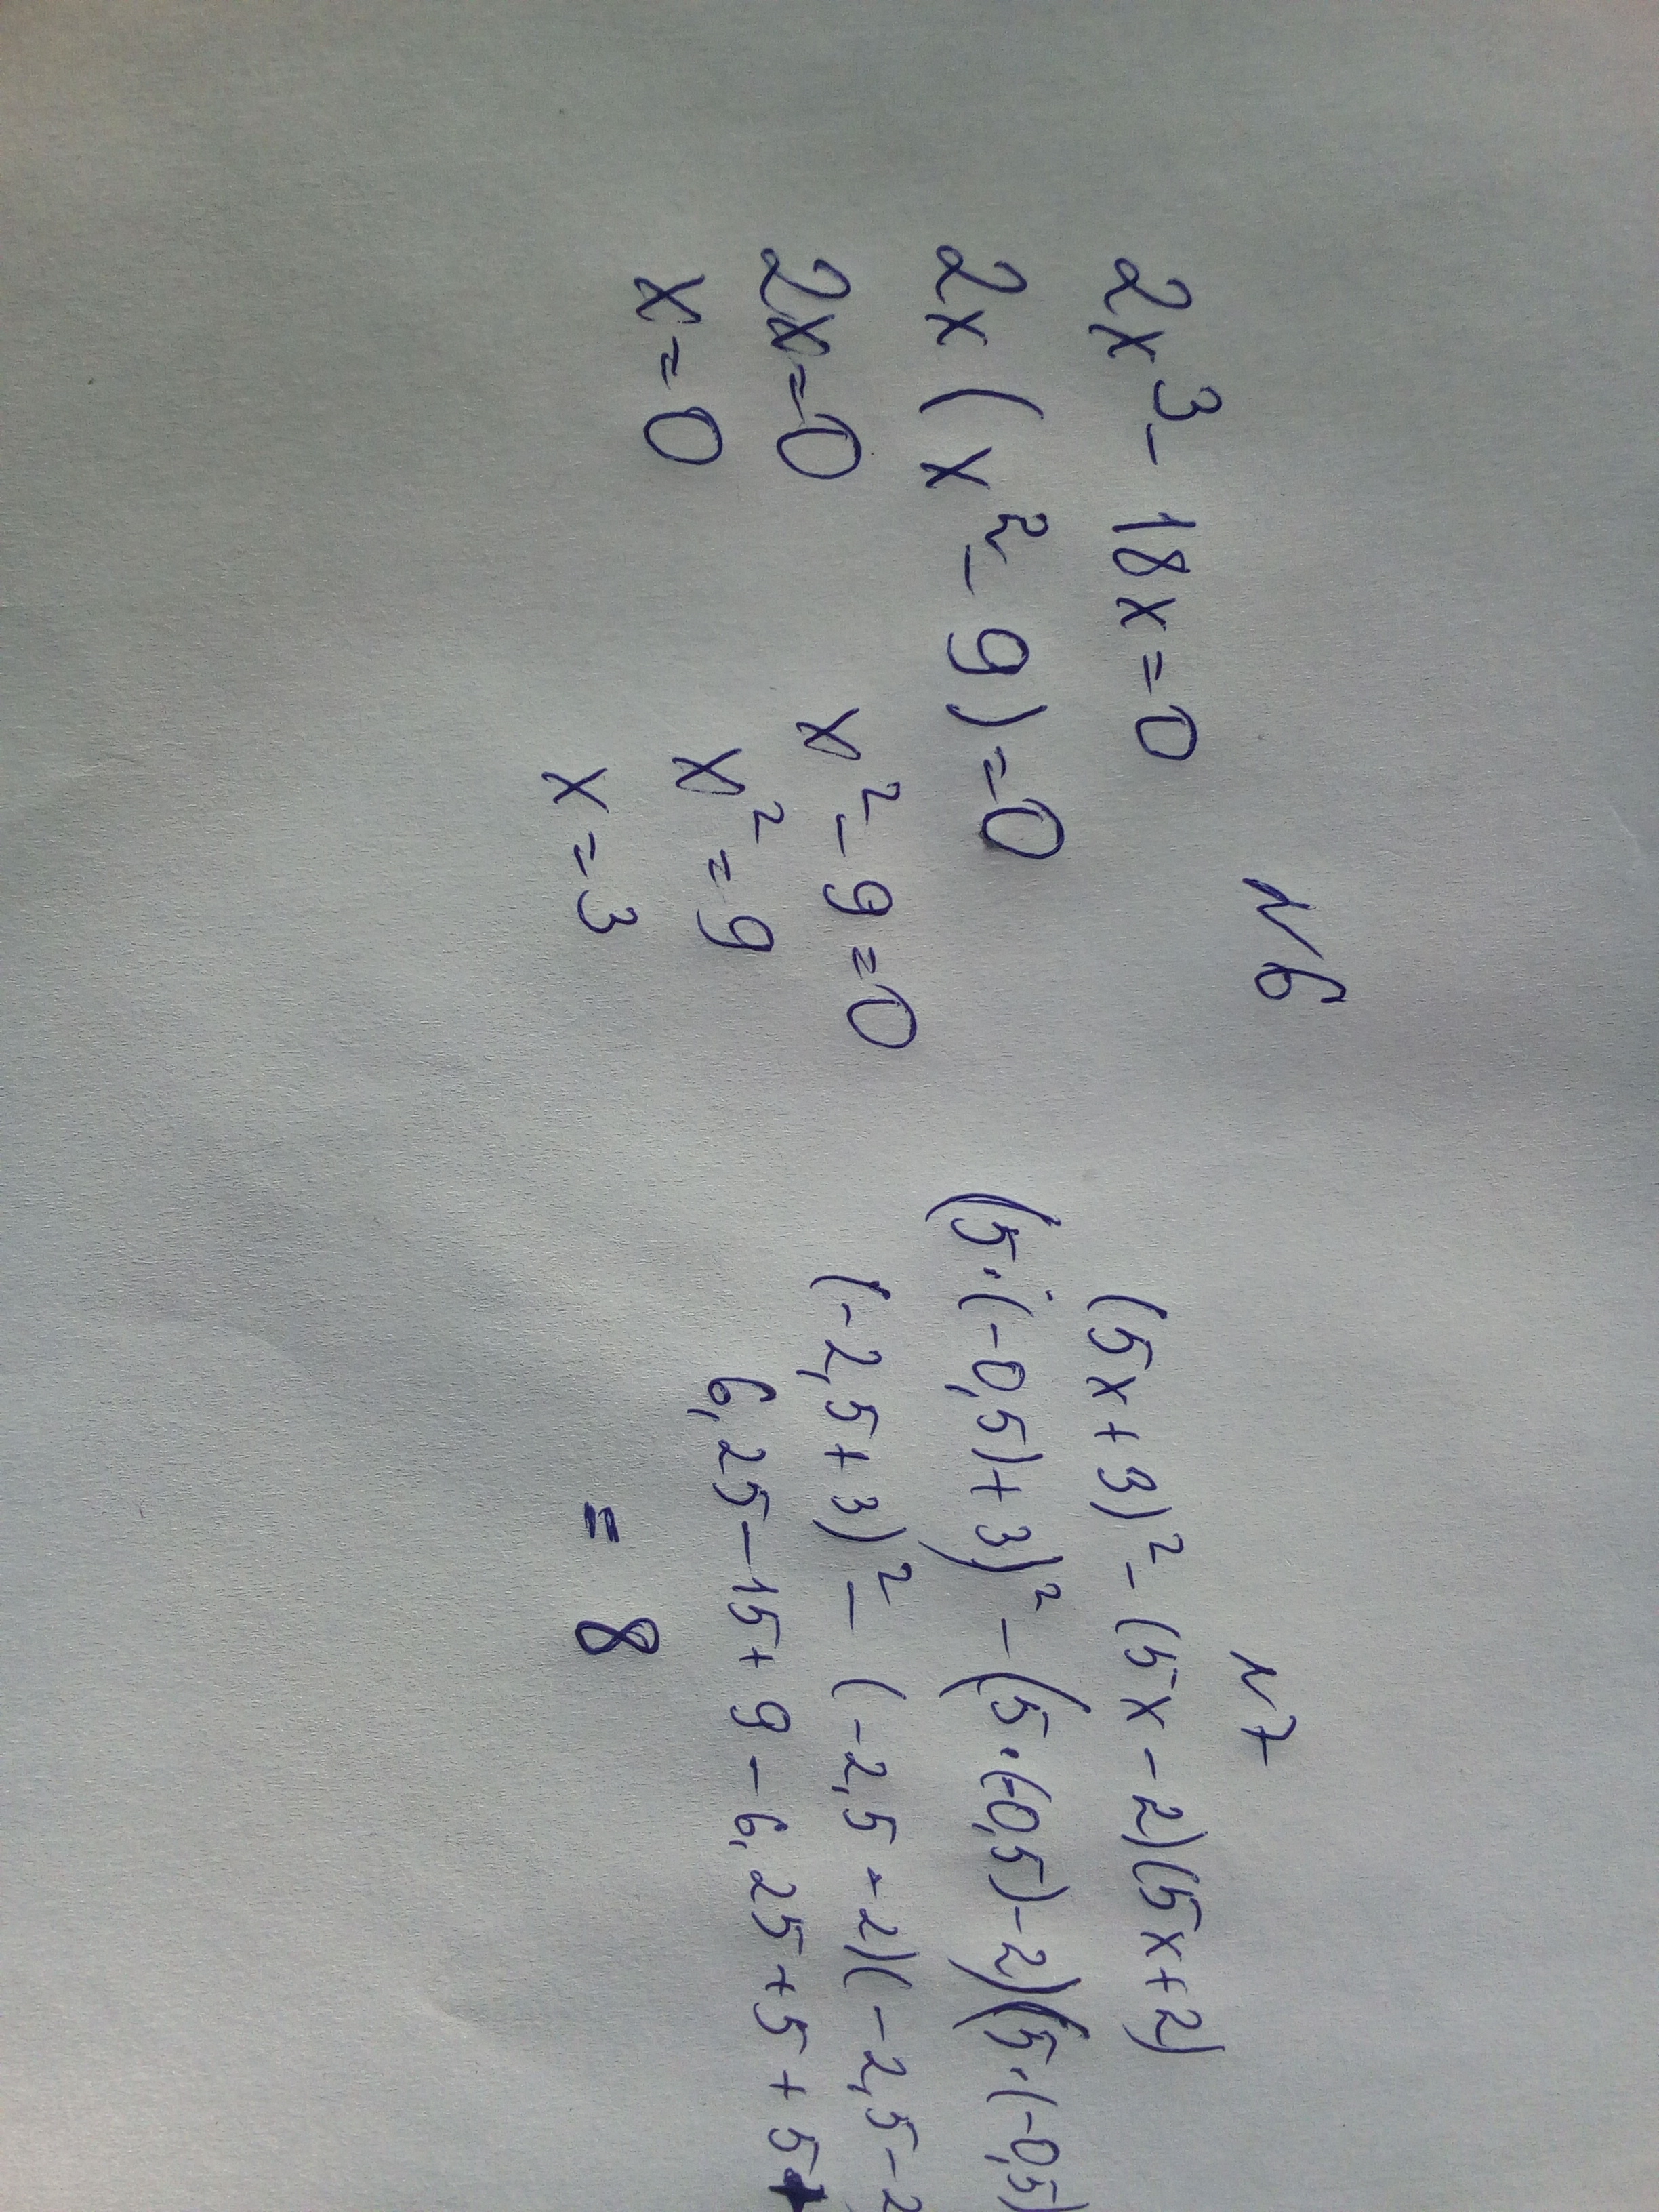 N6
2x³ - 18x = 0
2x (x² - 9) = 0
2x = 0
x² - 9 = 0
x = 0
x² = 9
x = 3
N7
(5x + 3)² - (5x - 2)(5x + 2)
(5·(-0,5) + 3)² - (5·(-0,5) - 2)(5·(-0,5)
(-2,5 + 3)² - (-2,5 + 2)(-2,5 - 2
6,25 - 15 + 9 - 6,25 + 5 + 5
= 8